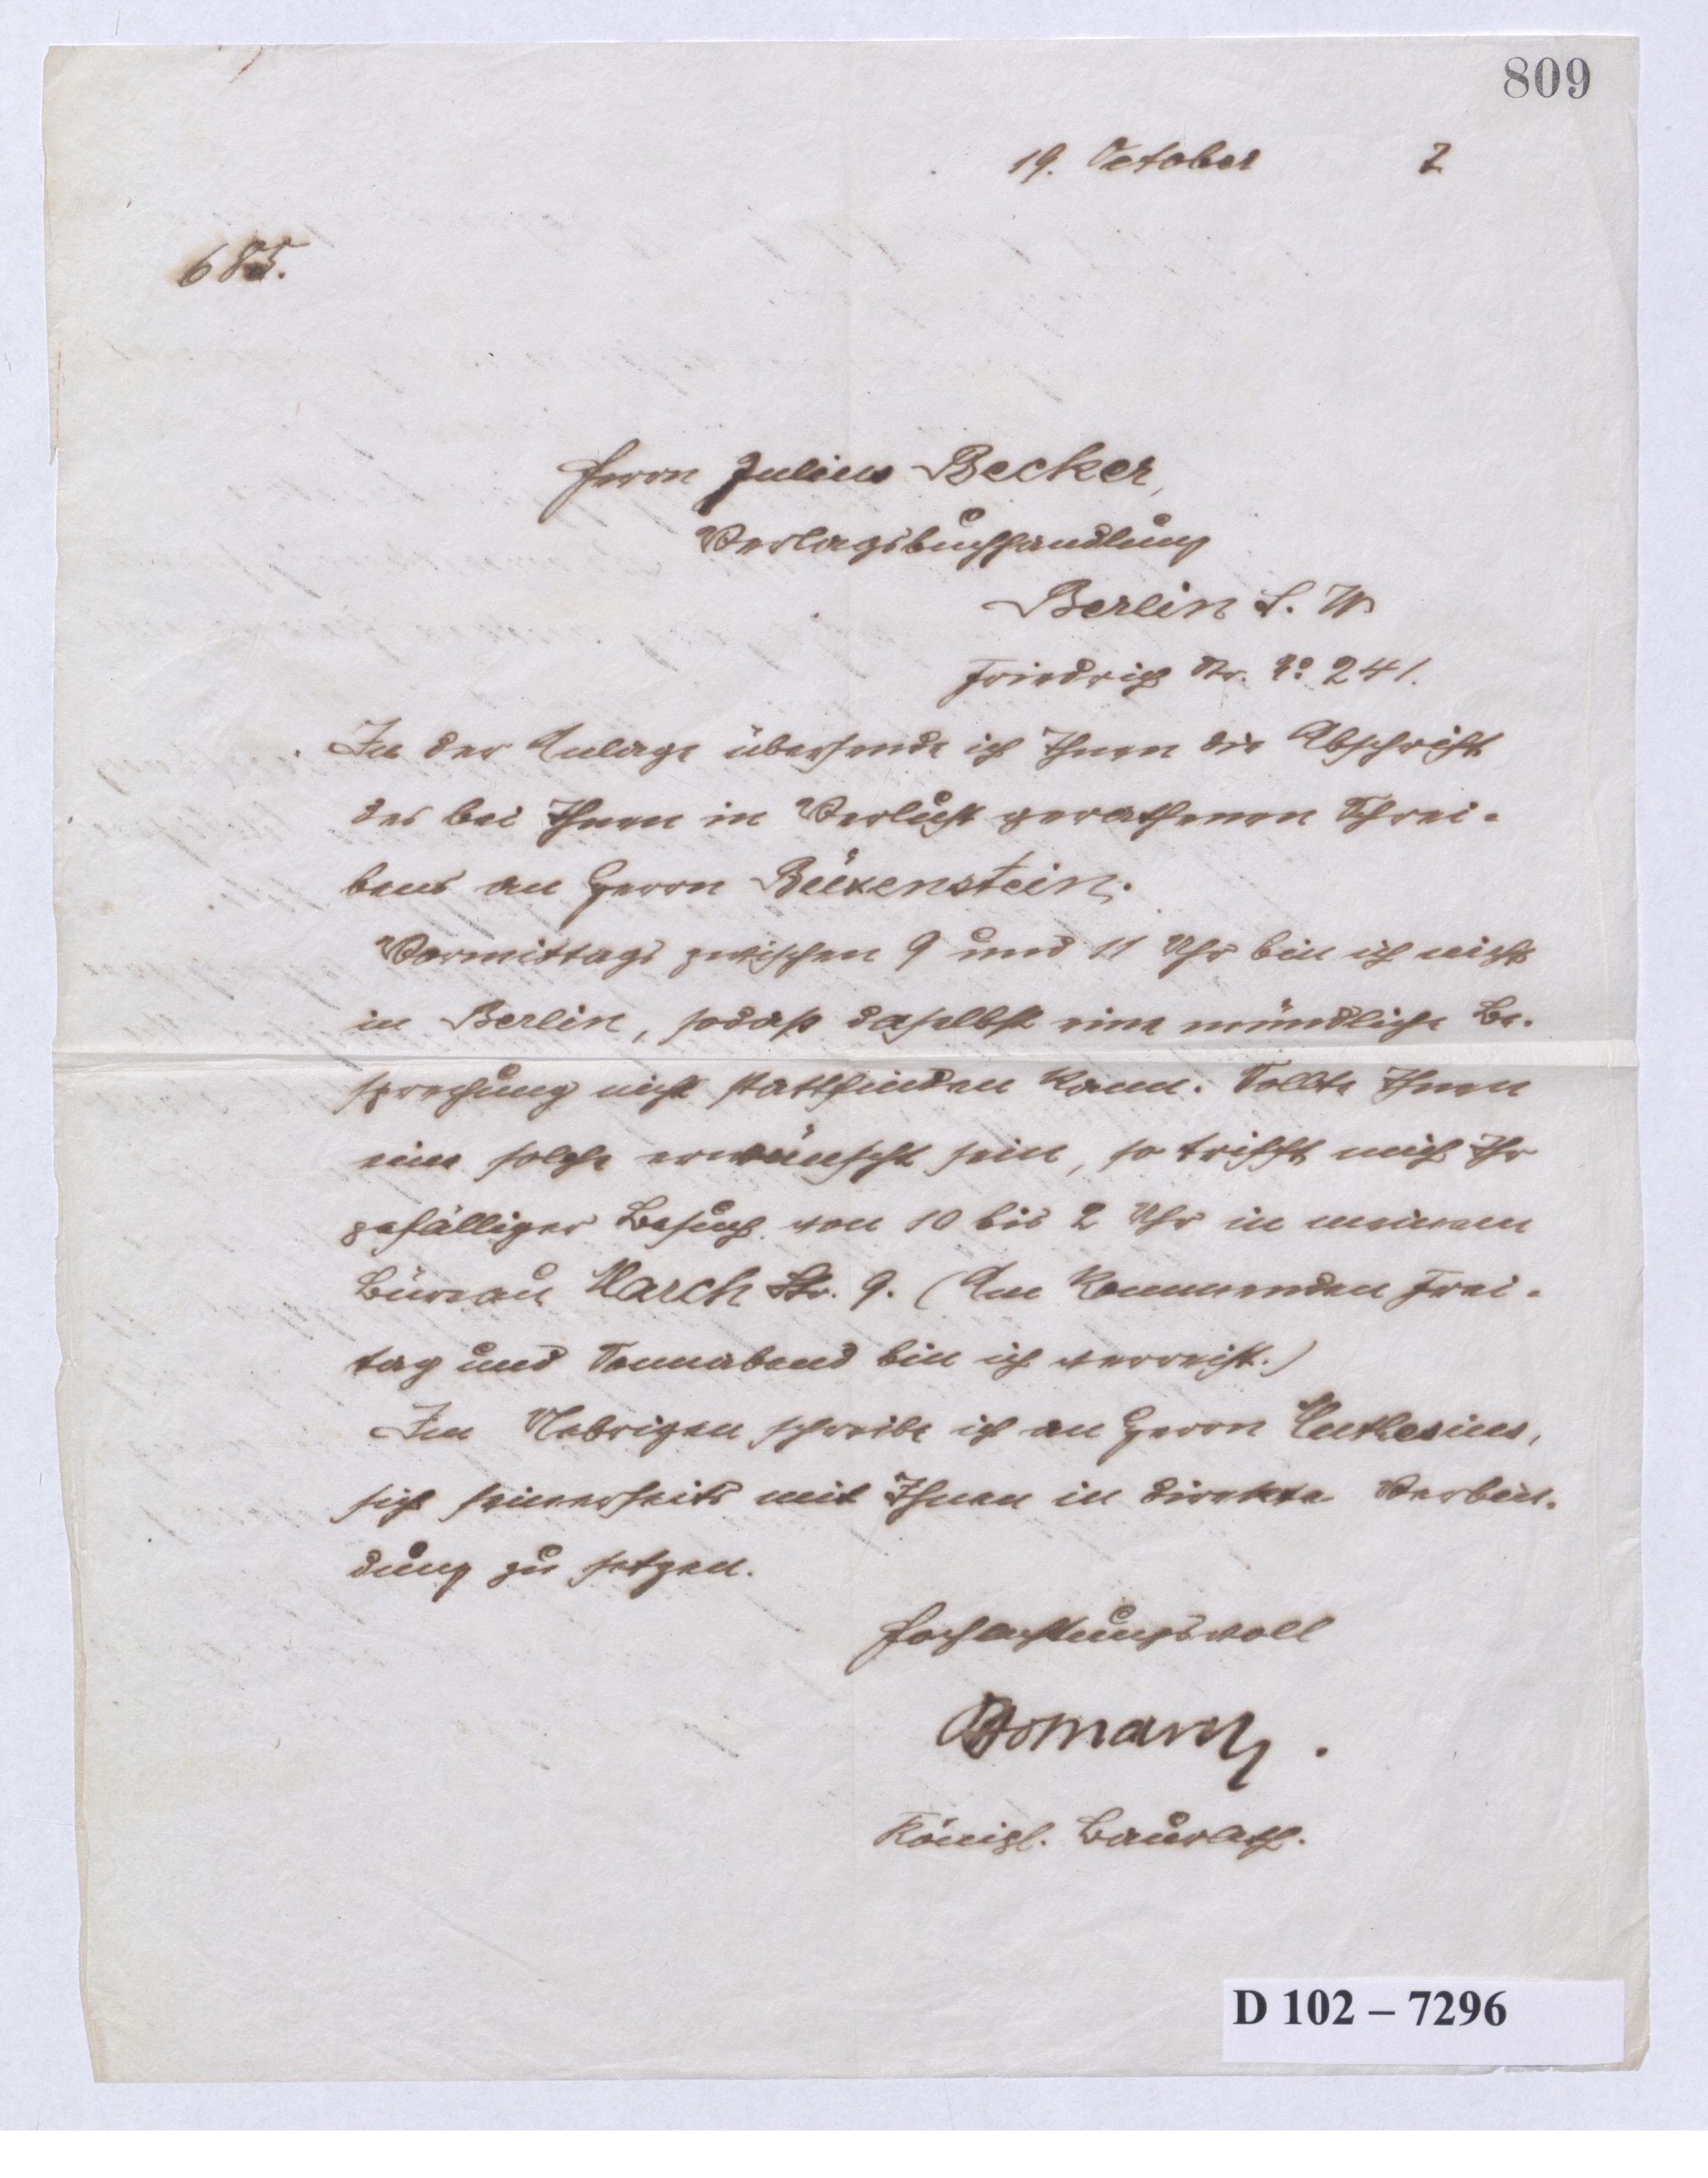 809
19. October 7
685.
Herrn Julius Becker,
Verlagsbuchhandlung
Berlin S. W.
Friedrich Str. No 241.
In der Anlage übersende ich Ihnen die Abschrift
des bei Ihnen in Verlust gerathenen Schrei-
bens an Herrn Büxenstein.
Vormittags zwischen 9 und 11 Uhr bin ich nicht
in Berlin, sodaß daselbst eine mündliche Be-
sprechung nicht stattfinden kann. Sollte Ihnen
eine solche erwünscht sein, so trifft mich Ihr
gefälliger Besuch von 10 bis 2 Uhr in meinem
Büreau March Str. 9. (Am kommenden Frei-
tag und Sonnabend bin ich verreist.)
Im Uebrigen schreibe ich an Herrn Muthesius,
sich seinerseits mit Ihnen in direkte Verbin-
dung zu setzen.
Hochachtungsvoll
Königl. Baurath.
D 102 – 7296